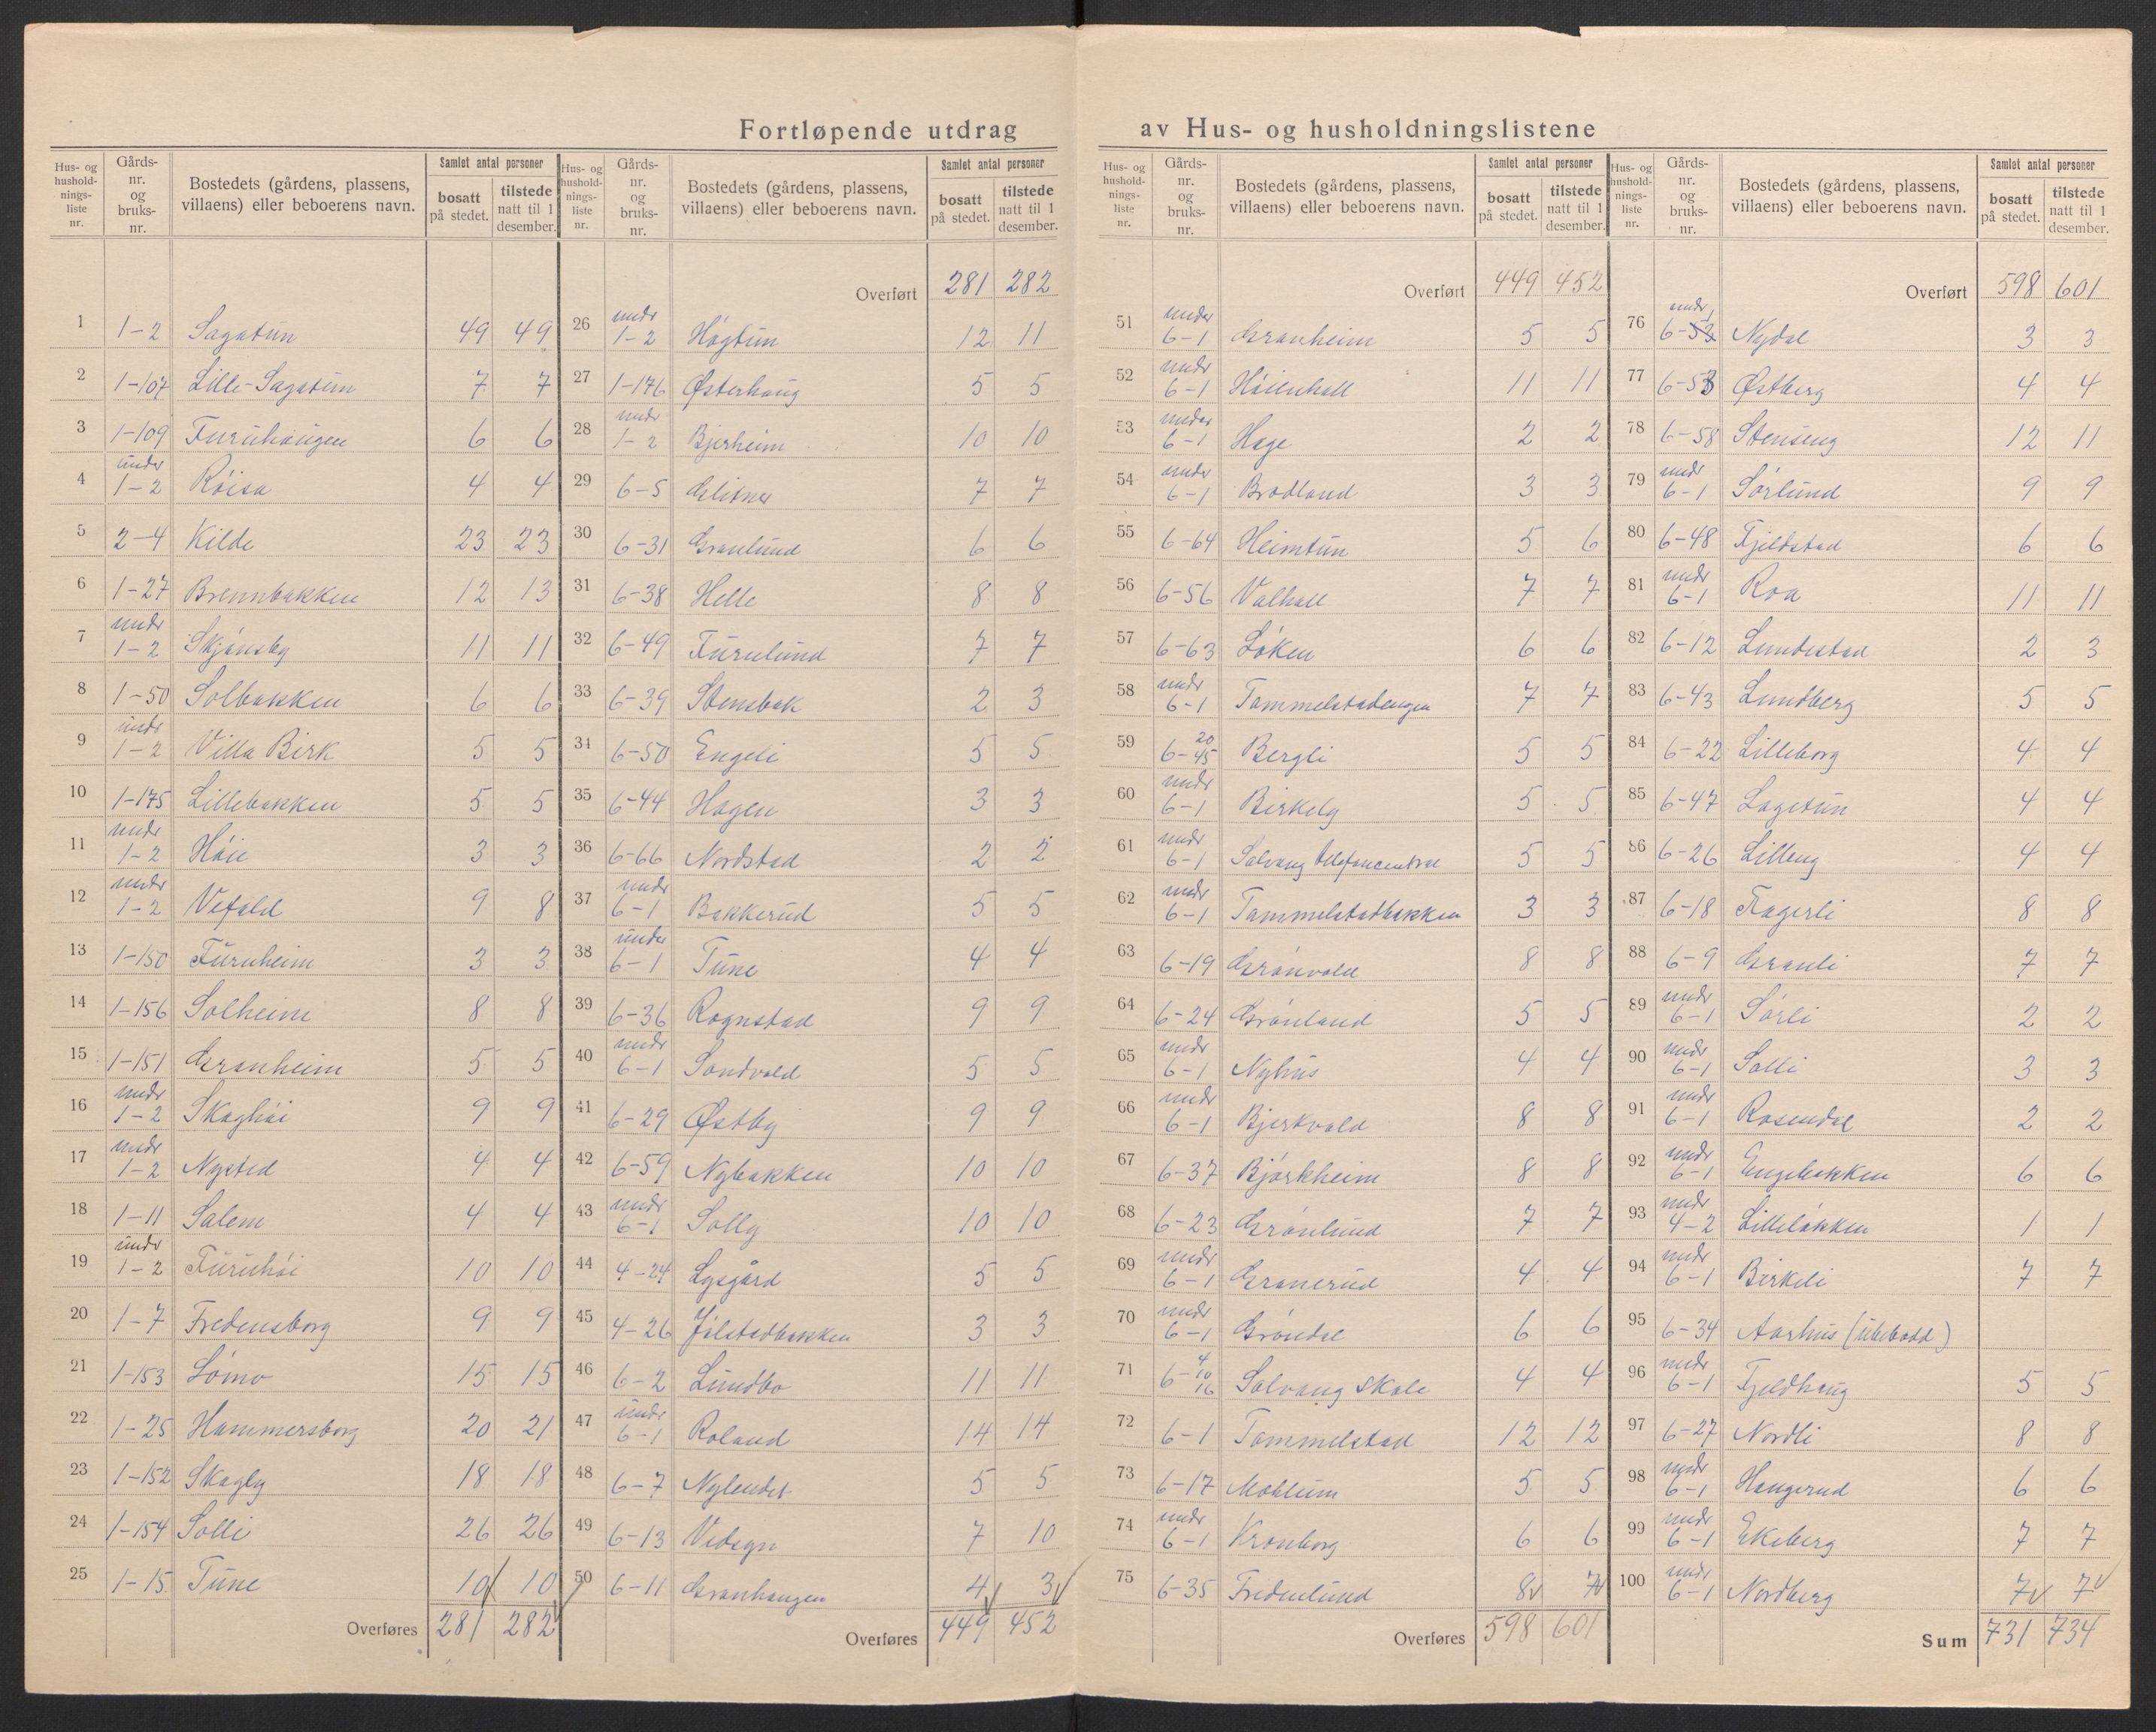 Fortløpende utdrag av Hus- og husholdningslistene
Hus- og husholdnings- liste nr. Gårds- nr. og bruks- nr. Bostedets (gårdens, plassens, villaens) eller beboerens navn. Samlet antal personer bosatt på stedet. tilstede natt til 1 desember.
1 1-2 Sagatun 49 49
2 1-107 Lille-Sagatun 7 7
3 1-109 Furuhaugen 6 6
4 under 1-2 Røisa 4 4
5 2-4 Kilde 23 23
6 1-27 Brennbakken 12 13
7 undr 1-2 Skjønsby 11 11
8 1-50 Solbakken 6 6
9 undr 1-2 Villa Birk 5 5
10 1-175 Lillebakken 5 5
11 undr 1-2 Høie 3 3
12 undr 1-2 Vefald 9 8
13 1-150 Furuheim 3 3
14 1-156 Solheim 8 8
15 1-151 Granheim 5 5
16 undr 1-2 Skoghøi 9 9
17 undr 1-2 Nysted 4 4
18 1-11 Salem 4 4
19 undr 1-2 Furuhøi 10 10
20 1-7 Fredensborg 9 9
21 1-153 Lømo 15 15
22 1-25 Hammersborg 20 21
23 1-152 Skogly 18 18
24 1-154 Solli 26 26
25 1-15 Tune 10 10
Overføres 281 282
Hus- og husholdnings- liste nr. Gårds- nr. og bruks- nr. Bostedets (gårdens, plassens, villaens) eller beboerens navn. Samlet antal personer bosatt på stedet. tilstede natt til 1 desember.
Overført 281 282
26 undr 1-2 Høgtun 12 11
27 1-176 Østerhaug 5 5
28 undr 1-2 Bjerheim 10 10
29 6-5 Glitner 7 7
30 6-31 Granlund 6 6
31 6-38 Helle 8 8
32 6-49 Furulund 7 7
33 6-39 Stensbak 2 3
34 6-50 Engeli 5 5
35 6-44 Hagen 3 3
36 6-66 Nordstad 2 2
37 undr 6-1 Bakkerud 5 5
38 under 6-1 Tune 4 4
39 6-36 Rognstad 9 9
40 undr 6-1 Sandvold 5 5
41 6-29 Østby 9 9
42 6-59 Nybakken 10 10
43 undr 6-1 Solly 10 10
44 4-24 Lysgård 5 5
45 4-26 Jølstadbakken 3 3
46 6-2 Lundbo 11 11
47 undr 6-1 Roland 14 14
48 6-7 Nylendet 5 5
49 6-13 Vidsyn 7 10
50 6-11 Granhaugen 4 3
Overføres 449 452
Hus- og husholdnings- liste nr. Gårds- nr. og bruks- nr. Bostedets (gårdens, plassens, villaens) eller beboerens navn. Samlet antal personer bosatt på stedet. tilstede natt til 1 desember.
Overført 449 452
51 under 6-1 Granheim 5 5
52 undr 6-1 Høienhall 11 11
53 under 6-1 Hage 2 2
54 under 6-1 Brodland 3 3
55 6-64 Heimtun 5 6
56 6-56 Valhall 7 7
57 6-63 Løken 6 6
58 undr 6-1 Tommelstadengen 7 7
59 6-20 45 Bergli 5 5
60 undr 6-1 Birkely 5 5
61 undr 6-1 Solvang telefoncentral 5 5
62 undr 6-1 Tommelstadbakken 3 3
63 6-19 Grønvold 8 8
64 6-24 Grønland 5 5
65 undr 6-1 Nyhus 4 4
66 undr 6-1 Bjerkvold 8 8
67 6-37 Bjørkheim 8 8
68 6-23 Grønlund 7 7
69 undr 6-1 Granerud 4 4
70 undr 6-1 Grøndal 6 6
71 6-4 10 16 Solvang skole 4 4
72 6-1 Tommelstad 12 12
73 6-17 Moklum 5 5
74 undr 6-1 Kronborg 6 6
75 6-35 Fredenlund 8 7
Overføres 598 601
Hus- og husholdnings- liste nr. Gårds- nr. og bruks- nr. Bostedets (gårdens, plassens, villaens) eller beboerens navn. Samlet antal personer bosatt på stedet. tilstede natt til 1 desember.
Overført 598 601
76 undr 6-53 Nydal 3 3
77 6-53 Østberg 4 4
78 6-58 Stenseng 12 11
79 undr 6-1 Sørlund 9 9
80 6-48 Fjeldstad 6 6
81 undr 6-1 Roa 11 11
82 6-12 Lundestad 2 3
83 6-43 Lundberg 5 5
84 6-22 Lilleborg 4 4
85 6-47 Lagetun 4 4
86 6-26 Lilleng 4 4
87 6-18 Fagerli 8 8
88 6-9 Granli 7 7
89 undr 6-1 Sørli 2 2
90 undr 6-1 Solli 3 3
91 undr 6-1 Rosendal 2 2
92 undr 6-1 Engebakken 6 6
93 undr 4-2 Lilleløkken 1 1
94 undr 6-1 Birkeli 7 7
95 6-34 Aarhus (ubebodd)
96 undr 6-1 Fjeldhaug 5 5
97 6-27 Nordli 8 8
98 undr 6-1 Haugerud 6 6
99 undr 6-1 Ekeberg 7 7
100 undr 6-1 Nordberg 7 7
Sum 731 734